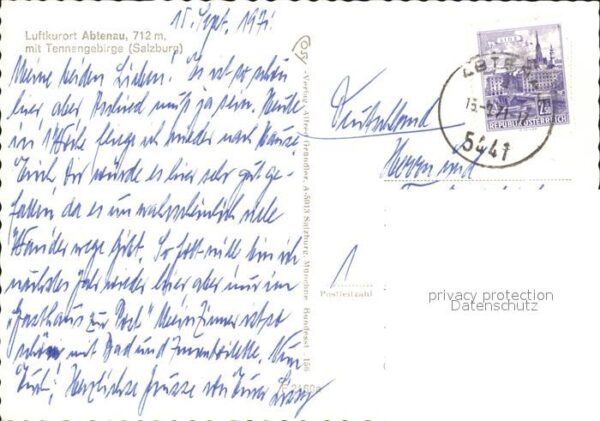 15. Sept. 1971
Luftkurort Abtenau, 712 m,
mit Tennengebirge (Salzburg)
Meine beiden Lieben! Es ist so schön
hier aber Abschied muß ja sein. Heute
in 1 Woche fliege ich wieder nach Hause.
Erich, Dir würde es hier sehr gut ge-
fallen, da es unwahrscheinlich viele
Wanderwege gibt. So Gott will bin ich
nächstes Jahr wieder hier aber nur im
"Gasthaus zur Post" Mein Zimmer ist so
schön mit Bad und Innentoilette. Nun
Tschüß! Herzliche Grüsse von Eurer
Verlag Alfred Gründler, A-5013 Salzburg, Münchner Bundesstr. 156
Deutschland
Herrn und
Postleitzahl
REPUBLIK ÖSTERREICH
ABTENAU
5441
privacy protection
Datenschutz